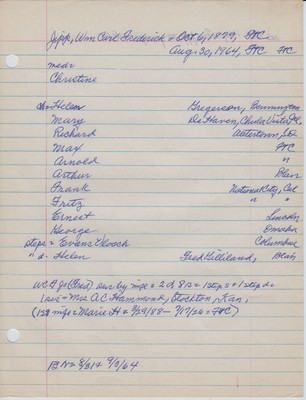 Jipp, Wm Carl Frederick = Oct 6, 1879, FtC
Aug. 30, 1964, FtC FtC
md=
Christine
ch= Helen Gregerson, Bennington
Mary DeHaven, Chula Vista,
Richard Watertown, SD
Max FtC
Arnold "
Arthur Blair
Frank National City, Cal
Fritz " "
Ernest Lincoln
George Omaha
steps = Evans Klooch Columbus
" d. Helen Fred Gilliland, Blair
WCF Jr (Fred) sur by mge = 2d 8s = 1 step s + 1 step d=
1 sis = Mrs A.C. Hammond, Stockton, Kan,
(1st mge = Marie H = 9/29/88 - 7/17/26 = FtC)
EN = 9/3 + 9/2/64